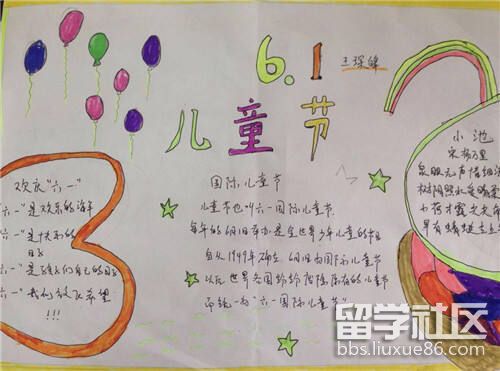 6.1
儿童节
欢庆“六一”
六一”是欢乐的海洋
六一”是快乐的
六一”是孩子们自己的
六一”我们放飞希望
!!!
国际儿童节
儿童节也叫六一国际儿童节.
每年的6月1日
是全世界少年儿童的节日
自从1949年
6月1日为国际儿童节
以后世界各国纷纷
儿童节
统一为“六一国际儿童节”
小池
宋杨万里
泉眼无声惜细流
树阴照水爱晴柔
小荷才露尖尖角
早有蜻蜓立上
留学社区
bbs.liuxue86.com